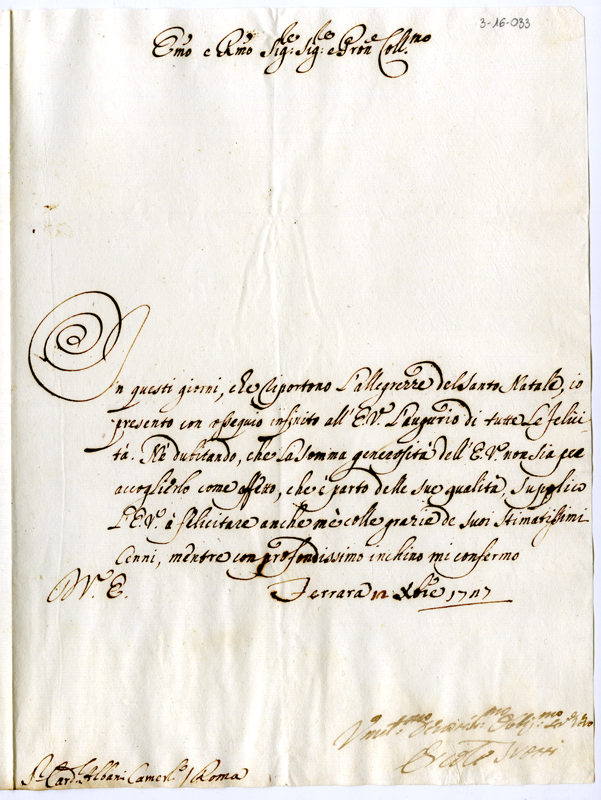 3-16-033
Emo e Rmo Sig:re Sig:re e Pron Coll:mo
In questi giorni, che riportono l'allegrezze del Santo Natale, io
presento con ossequio infinito all'E.V. l'augurio di tutte le felici
tà. Nè dubitando, che la somma generosità dell'E.V. non sia per
accoglierlo come effetto, che è parto delle sue qualità, supplico
l'E.V. à felicitare anche mè colle grazie de suoi stimatissimi
Cenni, mentre con profondissimo inchino mi confermo
D V. E. Ferrara 12 Xbre 1727
Vmil:mo Oblig:mo
Ercole
Sr Card. Albani Camerl:o / Roma